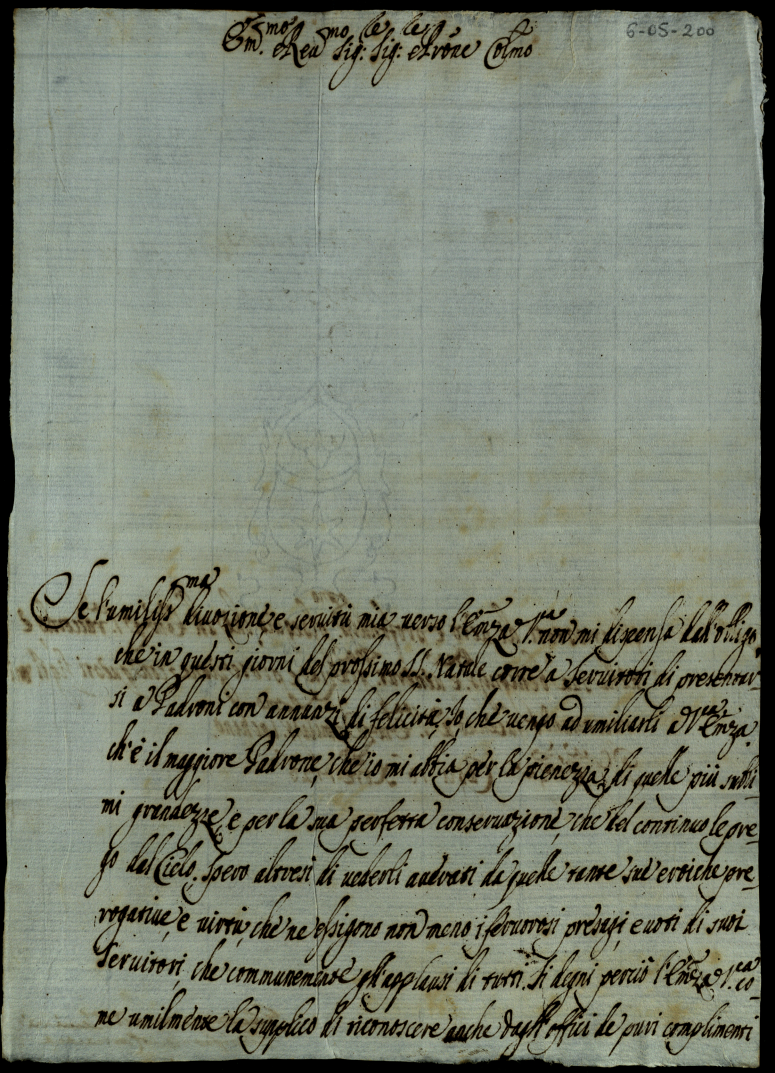 6-05-200
Em.mo e Reu.mo Sig.r Sig.r e Prone Colmo
Se l'umiliss.ma diuozione, e seruitù mia uerso l'Emza V.ra non mi dispensa dall'obligo,
che in questi giorni del prossimo SS. Natale corre a Seruitori di presentar-
si a Padroni con annunzi di felicità, Io, che uengo ad umiliarli a V.ra Emza
ch'è il maggiore Padrone, che io mi abbia per la pienezza di quelle più subli-
mi grandezze, e per la sua perfetta conseruazione, che del continuo le pre-
go dal Cielo, spero altresì di uederli auuerati da quelle tante sue eroiche pre-
rogatiue, e uirtù, che ne essigono non meno i feruorosi presagi, e uoti di suoi
Seruitori, che communemente gl'applausi di tutti. Si degni perciò l'Emza V.ra co-
me umilmente la supplico di riconoscere anche dagl'offici de puri complimenti